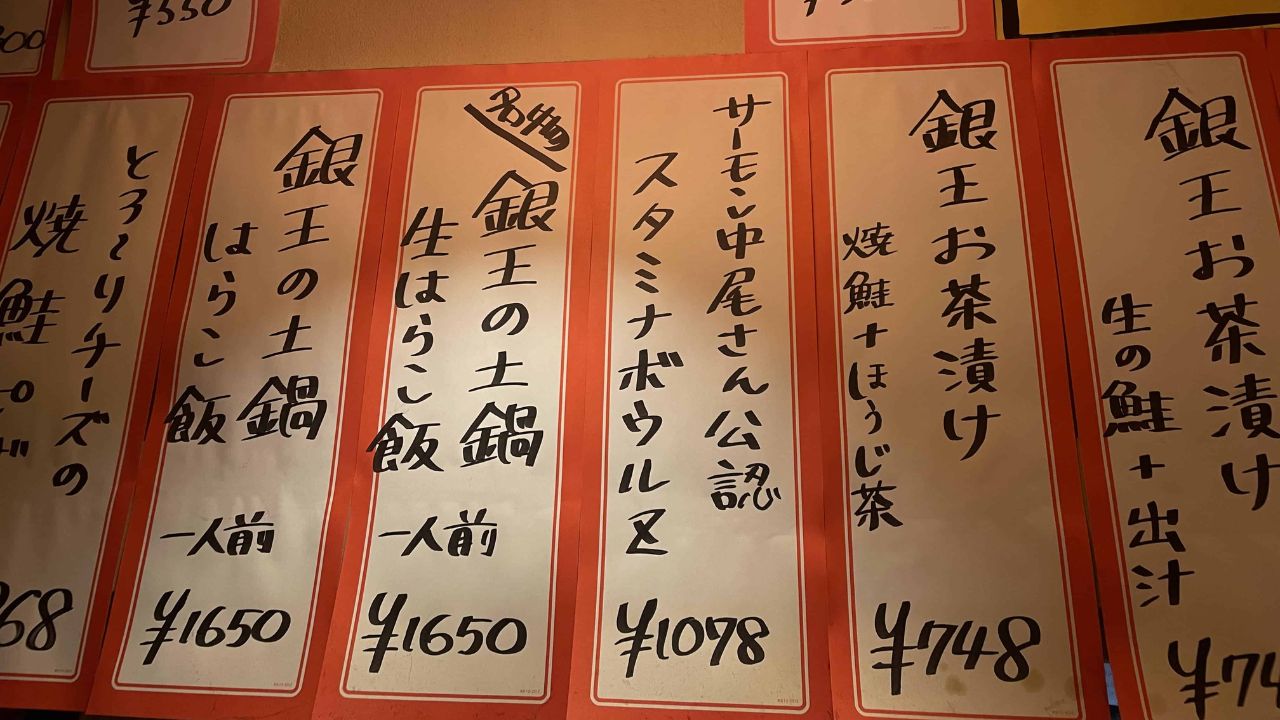 ¥550
銀王お茶漬け
生の鮭+出汁
銀王お茶漬け
焼鮭+ほうじ茶
¥748
サーモン中尾さん公認
スタミナボウルZ
¥1078
銀王の土鍋
生はらこ飯
一人前
¥1650
銀王の土鍋
はらこ飯
一人前
¥1650
とろ〜りチーズの
焼鮭